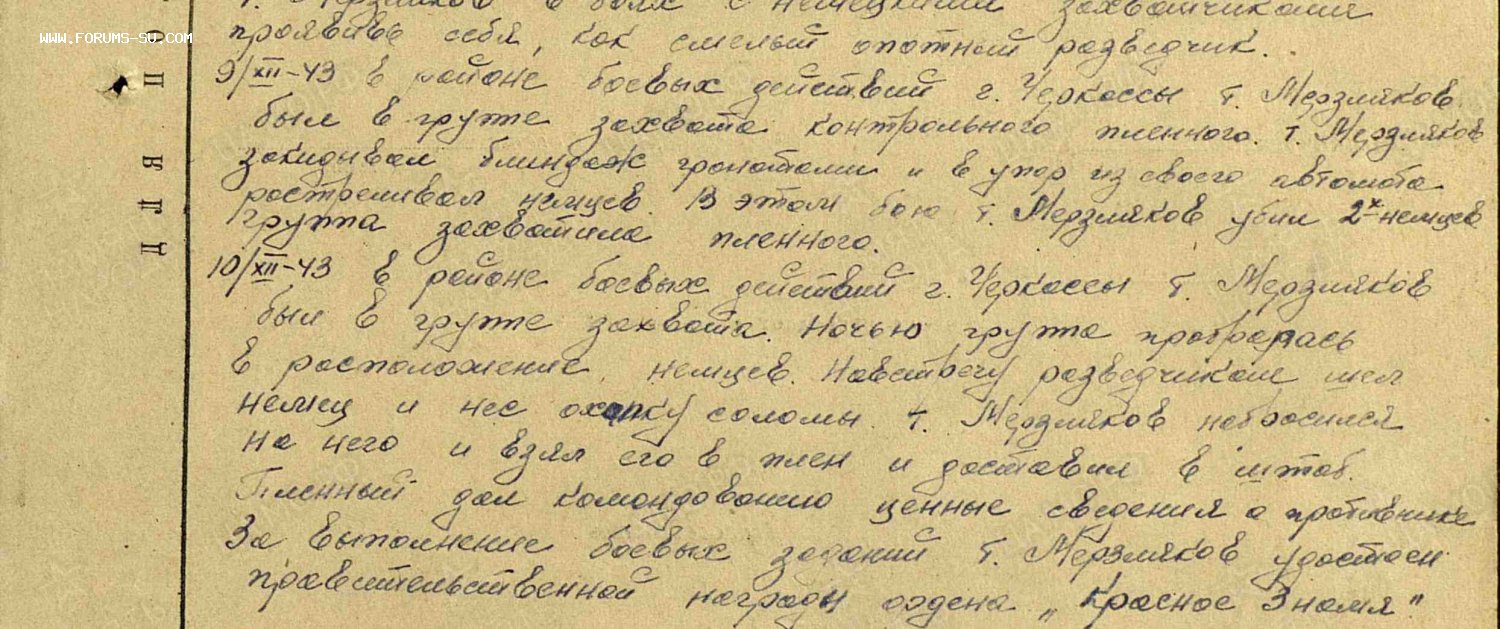 т. Мерзляков в боях с немецкими захватчиками
WWW.FORUMS-SU.COM
проявивь себя, как смелый опытный разведчик.
9/XII-43 в районе боевых действий г. Черкассы т. Мерзляков
был в группе захвата контрольного пленного. т. Мерзляков
закидывал блиндаж гранатами и в упор из своего автомата
растреливал немцев. В этом бою т. Мерзляков убил 2х немцев
Группа захватила пленного.
10/XII-43 в районе боевых действий г. Черкассы т. Мерзляков
был в группе захвата. Ночью группа пробралась
в расположение немцев. Навстречу разведчикам шел
немец и нес охапку соломы т. Мерзляков набросился
на него и взял его в плен и доставил в штаб.
Пленный дал командованию ценные сведения о противнике
За выполнение боевых заданий т. Мерзляков удостоен
правительственной награды ордена „Красное Знамя"
О П
ДЛЯ